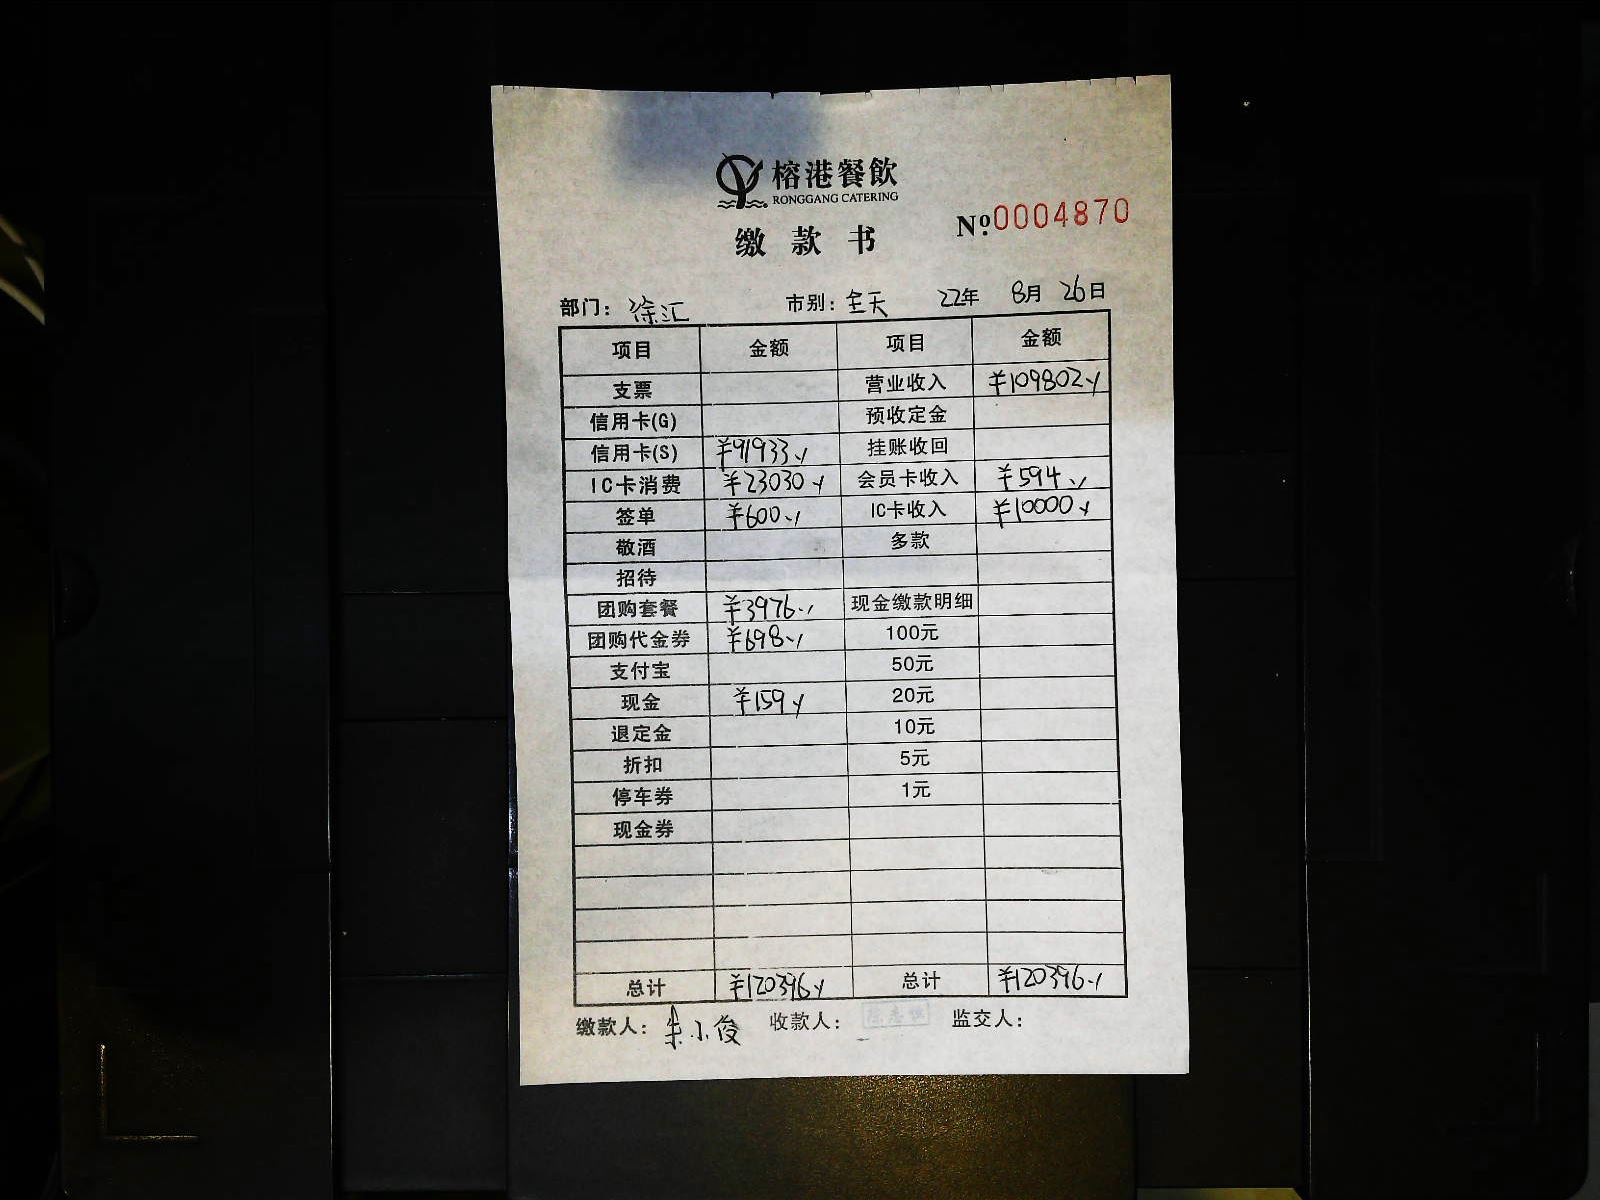 榕港餐飲
RONGGANG CATERING
缴款书
№.0004870
部门：徐汇 市别：全天 22年 8月 26日
项目 金额 项目 金额
支票 营业收入 ¥109802.-
信用卡(G) 预收定金
信用卡(S) ¥91933.- 挂账收回
IC卡消费 ¥23030.- 会员卡收入 ¥594.-
签单 ¥600.- IC卡收入 ¥10000.-
敬酒 多款
招待
团购套餐 ¥3976.- 现金缴款明细
团购代金券 ¥698.- 100元
支付宝 50元
现金 ¥159.- 20元
退定金 10元
折扣 5元
停车券 1元
现金券
总计 ¥120396.- 总计 ¥120396.-
缴款人：朱小俊 收款人： 监交人：